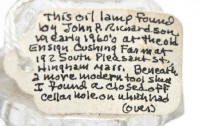 This oil lamp found
by John P. Richardson
in early 1960's at the old
Ensign Cushing Farm at
192 South Pleasant St.
Hingham Mass. Beneath
a more modern tool shed
I found a closed off
Cellar hole on which had
(over)